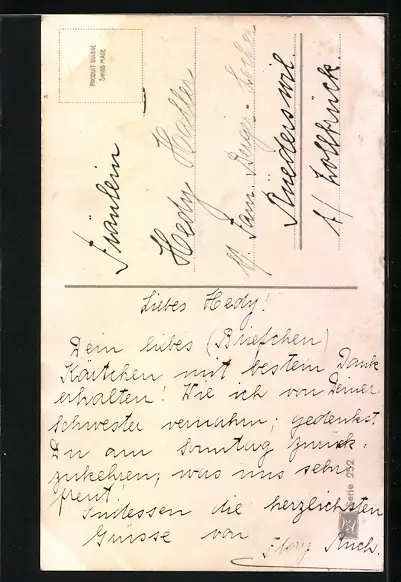 PRODUIT SUISSE
SWISS MADE
Fräulein
Hedy Haller
Rüederswil
b/ Zollbrück.
Liebes Hedy!
Dein liebes (Briefchen)
Kärtchen mit bestem Dank
erhalten! Wie ich von Deiner
Schwester vernahm, gedenkst
Du am Sonntag zurück-
zukehren, was uns sehr
freut!
Indessen die herzlichsten
Grüsse von
Ruch.
Serie 252